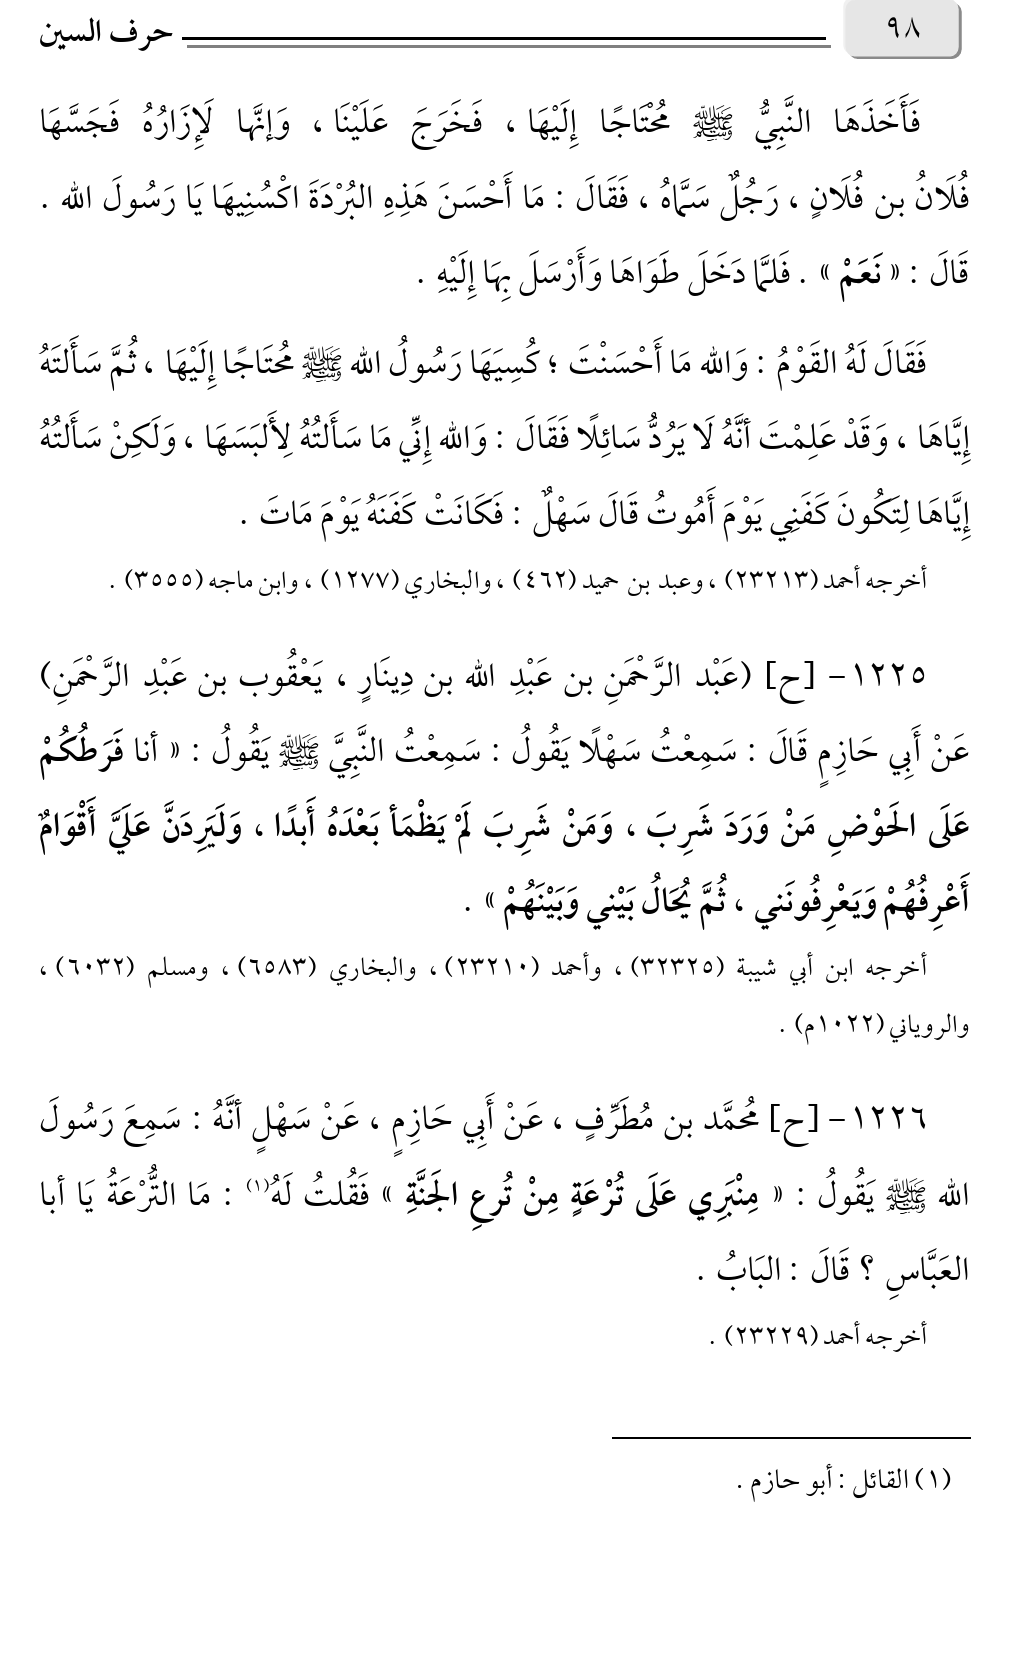 ٩٨
حرف السين
فَأَخَذَهَا النَّبِيُّ ﷺ مُحْتَاجًا إِلَيْهَا ، فَخَرَجَ عَلَيْنَا ، وَإنَّها لَإِزَارُهُ فَجَسَّهَا
فُلَانُ بن فُلَانٍ ، رَجُلٌ سَمَّاهُ ، فَقَالَ : مَا أَحْسَنَ هَذِهِ البُرْدَةَ اكْسُنِيهَا يَا رَسُولَ الله .
قَالَ : « نَعَمْ » . فَلمَّا دَخَلَ طَوَاهَا وَأَرْسَلَ بِهَا إِلَيْهِ .
فَقَالَ لَهُ القَوْمُ : وَالله مَا أَحْسَنْتَ ؛ كُسِيَهَا رَسُولُ الله ﷺ مُحتَاجًا إِلَيْهَا ، ثُمَّ سَأَلتَهُ
إِيَّاهَا ، وَقَدْ عَلِمْتَ أنَّهُ لَا يَرُدُّ سَائِلًا فَقَالَ : وَالله إِنِّي مَا سَأَلتُهُ لِأَلبَسَهَا ، وَلَكِنْ سَأَلتُهُ
إِيَّاهَا لِتَكُونَ كَفَنِي يَوْمَ أَمُوتُ قَالَ سَهْلٌ : فَكَانَتْ كَفَنَهُ يَوْمَ مَاتَ .
أخرجه أحمد (٢٣٢١٣) ، وعبد بن حميد (٤٦٢) ، والبخاري (١٢٧٧) ، وابن ماجه (٣٥٥٥) .
١٢٢٥- [ح] (عَبْد الرَّحْمَنِ بن عَبْدِ الله بن دِينَارٍ ، يَعْقُوب بن عَبْدِ الرَّحْمَنِ)
عَنْ أَبِي حَازِمٍ قَالَ : سَمِعْتُ سَهْلًا يَقُولُ : سَمِعْتُ النَّبِيَّ ﷺ يَقُولُ : « أنا فَرَطُكُمْ
عَلَى الحَوْضِ مَنْ وَرَدَ شَرِبَ ، وَمَنْ شَرِبَ لَمْ يَظْمَأ بَعْدَهُ أَبدًا ، وَلَيَرِدَنَّ عَلَيَّ أَقْوَامٌ
أَعْرِفُهُمْ وَيَعْرِفُونَني ، ثُمَّ يُحَالُ بَيْني وَبَيْنَهُمْ » .
أخرجه ابن أبي شيبة (٣٢٣٢٥) ، وأحمد (٢٣٢١٠) ، والبخاري (٦٥٨٣) ، ومسلم (٦٠٣٢) ،
والروياني (١٠٢٢م) .
١٢٢٦- [ح] مُحمَّد بن مُطَرِّفٍ ، عَنْ أَبِي حَازِمٍ ، عَنْ سَهْلٍ أنَّهُ : سَمِعَ رَسُولَ
الله ﷺ يَقُولُ : « مِنْبَرِي عَلَى تُرْعَةٍ مِنْ تُرعِ الجَنَّةِ » فَقُلتُ لَهُ(١) : مَا التُّرْعَةُ يَا أبا
العَبَّاسِ ؟ قَالَ : البَابُ .
أخرجه أحمد (٢٣٢٢٩) .
(١) القائل : أبو حازم .